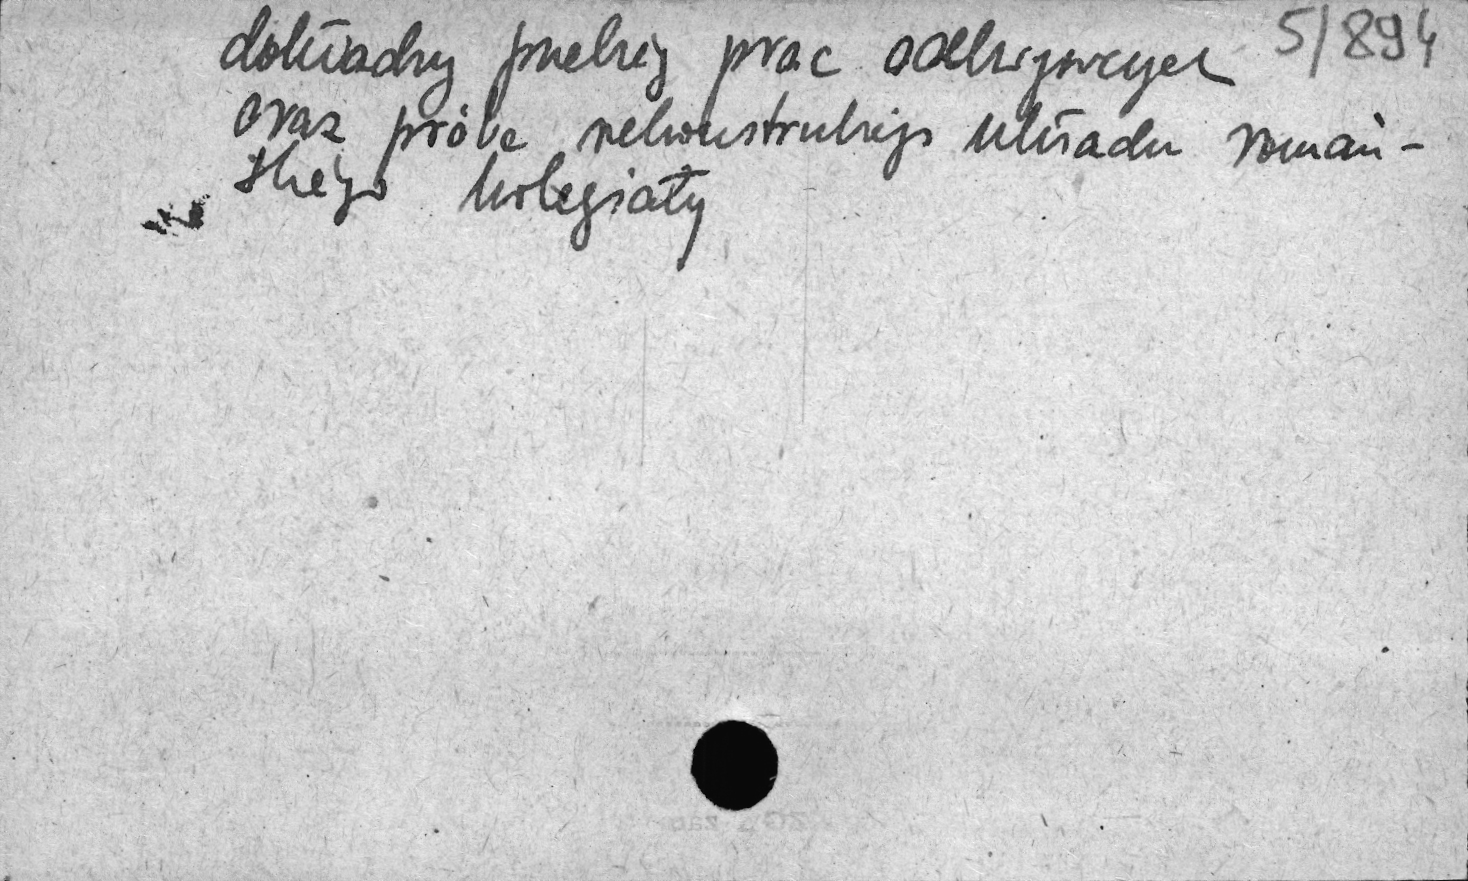 5/894
dokładny przebieg prac odkrywczych
oraz próbę rekonstrukcji układu romań-
skiego kolegiaty